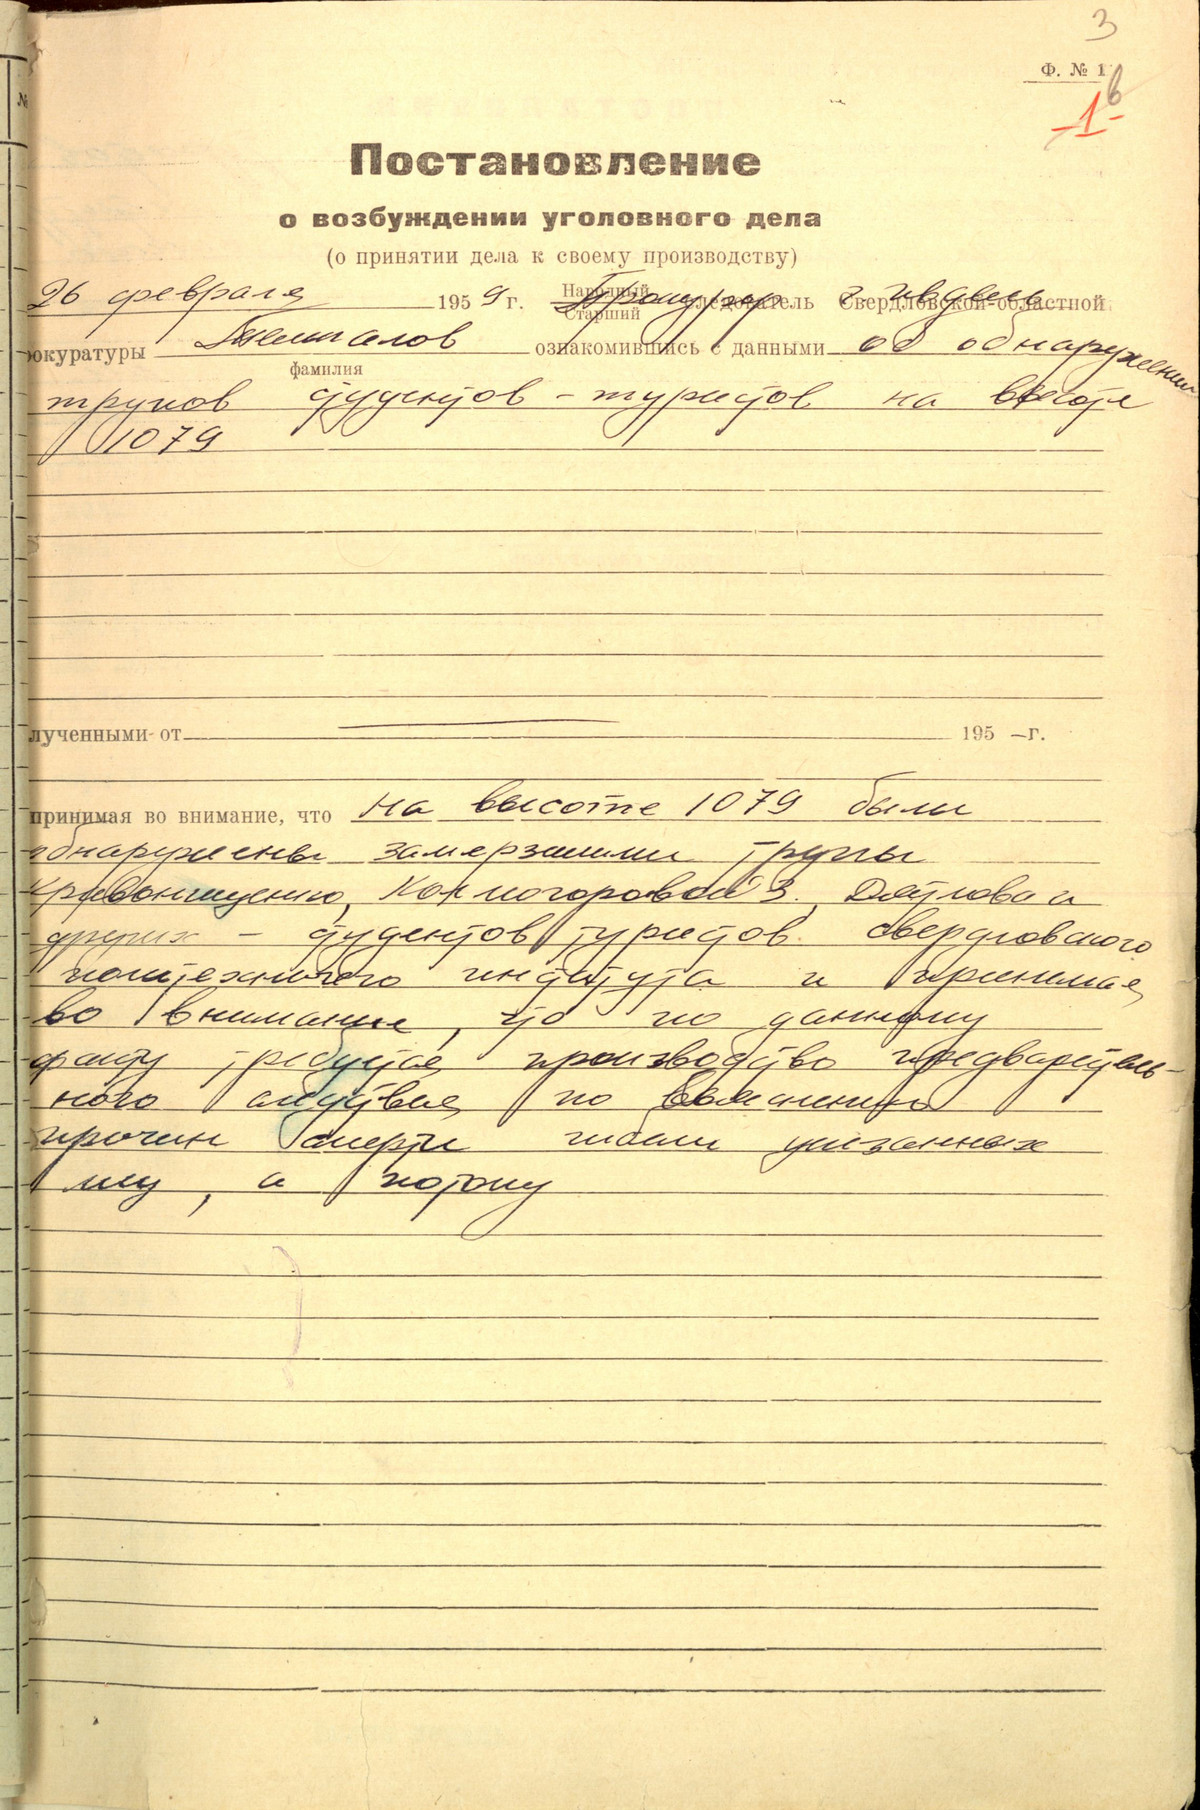 3
Ф. № 1
в
-1-
Постановление
о возбуждении уголовного дела
(о принятии дела к своему производству)
26 февраля 1959 г. Народный Старший Прокурор следователь г Ивделя Свердловской областной
рокуратуры Темпалов ознакомившись с данными об обнаружении
фамилия
трупов студентов - туристов на высоте
1079
лученными от 195 – г.
принимая во внимание, что на высоте 1079 были
обнаружены замерзшими трупы
Кривонищенко, Колмогоровой З., Дятлова и
других - студентов туристов Свердловского
политехничего института и принимая
во внимание, что по данному
факту требуется производство предваритель-
ного следствия по выяснению
причин смерти гибели указанных
лиц, а потому